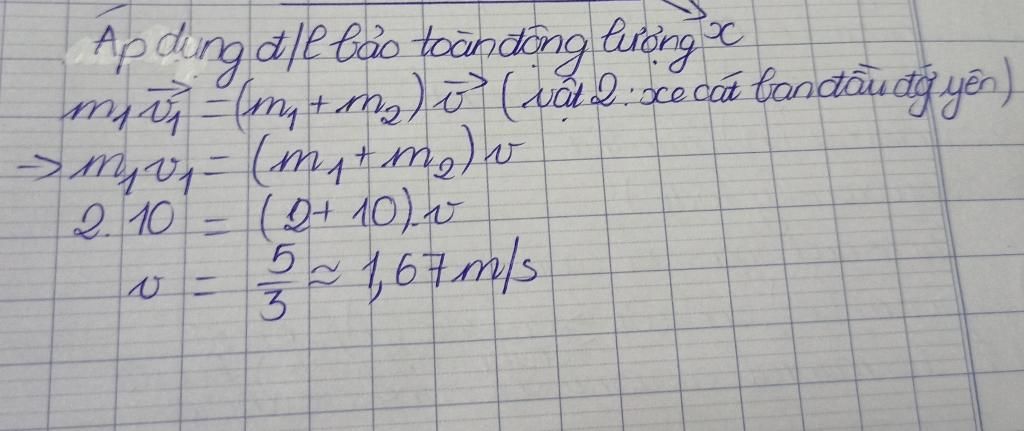 Áp dụng đ/l bảo toàn động lượng x
m₁v₁⃗ = (m₁ + m₂) v⃗ (vật 2: xe cát ban đầu đứg yên)
→ m₁v₁ = (m₁ + m₂) v
2. 10 = (2 + 10).v
v = 5/3 ≈ 1,67 m/s